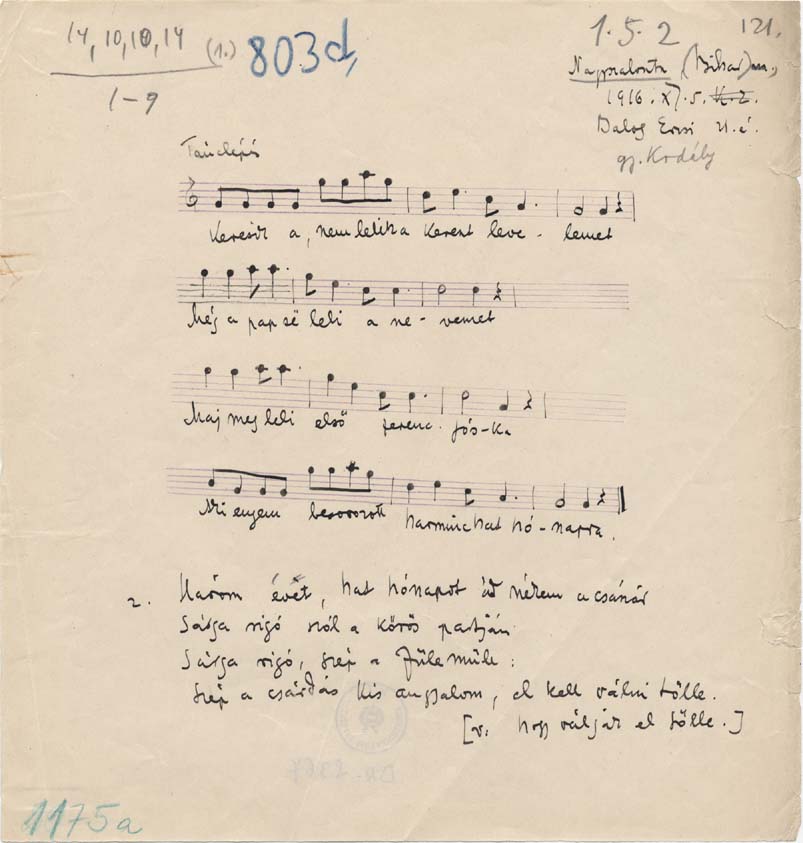 14, 10, 10, 14 (1.) 803d,
1–9
1.5.2 121.
Nagyszalonta (Bihar) m.,
1916. XI. 5. K. Z.
Balog Erzsi 21. é.
gy. Kodály
Tánclépés
Keresik a, nem lelik a kerek leve - lemet
Még a pap sē leli a ne - vemet
Maj meg leli első ferenc jós-ka
Ki engem besorozott harminchat hó - napra.
2. Három évet, hat hónapot ád nékem a császár
Sárga rigó szól a Körös partján
Sárga rigó, szép a fülemüle:
szép a csárdás kis angyalom, el kell válni tőlle.
[v. hogy váljak el tőlle.]
1175a